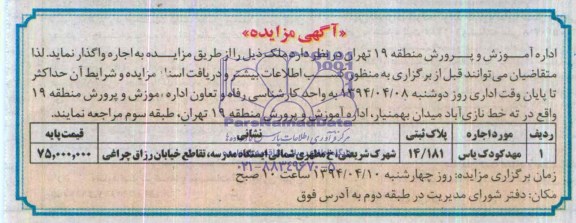 «آگهی مزایده»
اداره آموزش و پرورش منطقه ۱۹ تهران در نظر دارد ملک ذیل را از طریق مزایده به اجاره واگذار نماید. لذا
متقاضیان می‌توانند قبل از برگزاری به منظور کسب اطلاعات بیشتر و دریافت اسناد مزایده و شرایط آن حداکثر
تا پایان وقت اداری روز دوشنبه ۱۳۹۴/۰۴/۰۸ به واحد کارشناسی رفاه و تعاون اداره آموزش و پرورش منطقه ۱۹
واقع در ته خط نازی‌آباد میدان بهمنیار، اداره آموزش و پرورش منطقه ۱۹ تهران، طبقه سوم مراجعه نمایند.
ردیف مورد اجاره پلاک ثبتی نشانی قیمت پایه
۱ مهدکودک یاس ۱۴/۱۸۱ شهرک شریعتی، خ مطهری شمالی ایستگاه مدرسه، تقاطع خیابان رزاق چراغی ۷۵,۰۰۰,۰۰۰
زمان برگزاری مزایده: روز چهارشنبه ۱۳۹۴/۰۴/۱۰ ساعت ۱۰ صبح
مکان: دفتر شورای مدیریت در طبقه دوم به آدرس فوق
ParsNamadData
۰۲۱-۸۸۳۴۹۶۷۰-۵